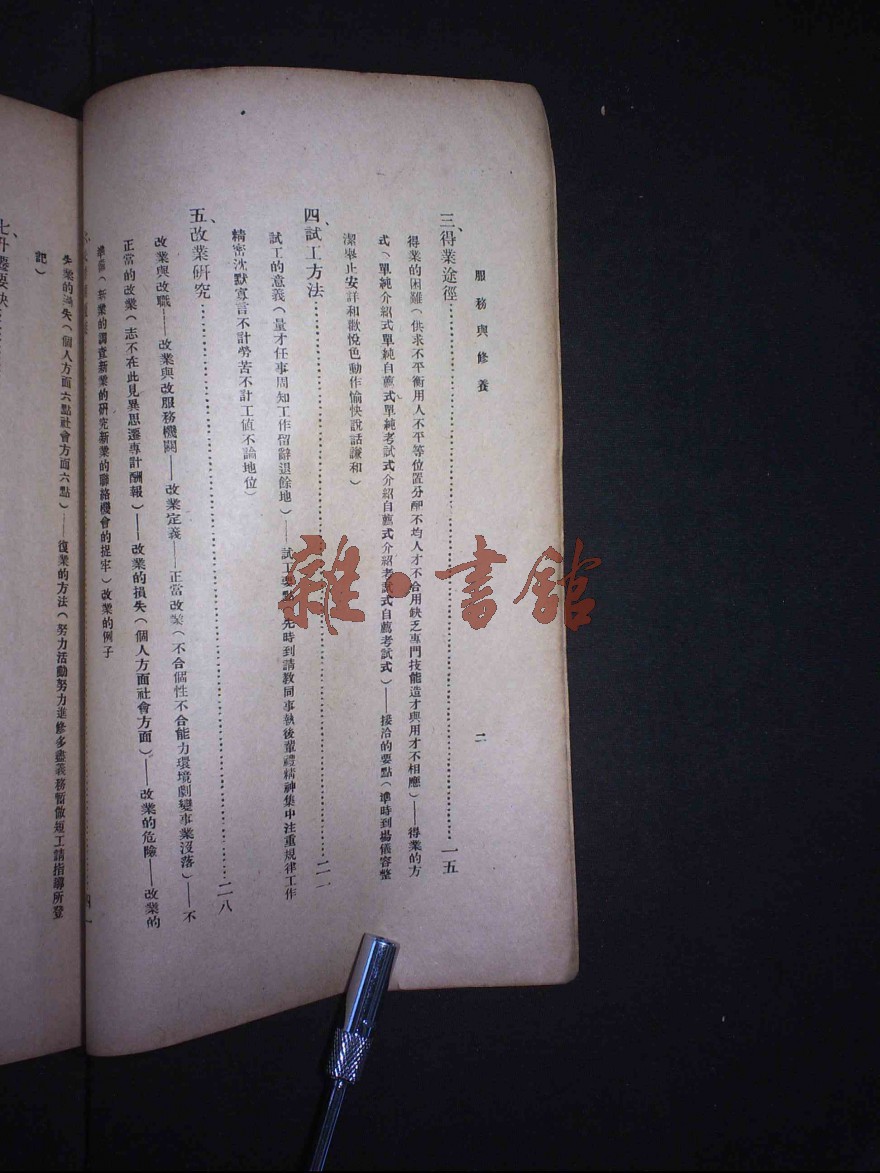 服務與修養
二
三、得業途徑……………一五
得業的困難（供求不平衡用人不平等位置分配不均人才不合用缺乏專門技能造才與用才不相應）——得業的方
式（單純介紹式單純自薦式單純考試式介紹自薦式介紹考試式自薦考試式）——接洽的要點（準時到場儀容整
潔舉止安詳和歡悅色動作愉快說話謙和）
四、試工方法……………二一
試工的意義（量才任事周知工作留辭退餘地）——試工要點（先時到請教同事執後輩禮精神集中注重規律工作
精密沈默寡言不計勞苦不計工值不論地位）
五、改業研究……………二八
改業與改職——改業與改服務機關——改業定義——正當改業（不合個性不合能力環境劇變事業沒落）——不
正當的改業（志不在此見異思遷專計酬報）——改業的損失（個人方面社會方面）——改業的危險——改業的
準備（新業的調查新業的研究新業的聯絡機會的捉牢）改業的例子
失業的損失（個人方面六點社會方面六點）——復業的方法（努力活動努力進修多盡義務暫做短工請指導所登
記）
七、升遷要訣
雜·書館